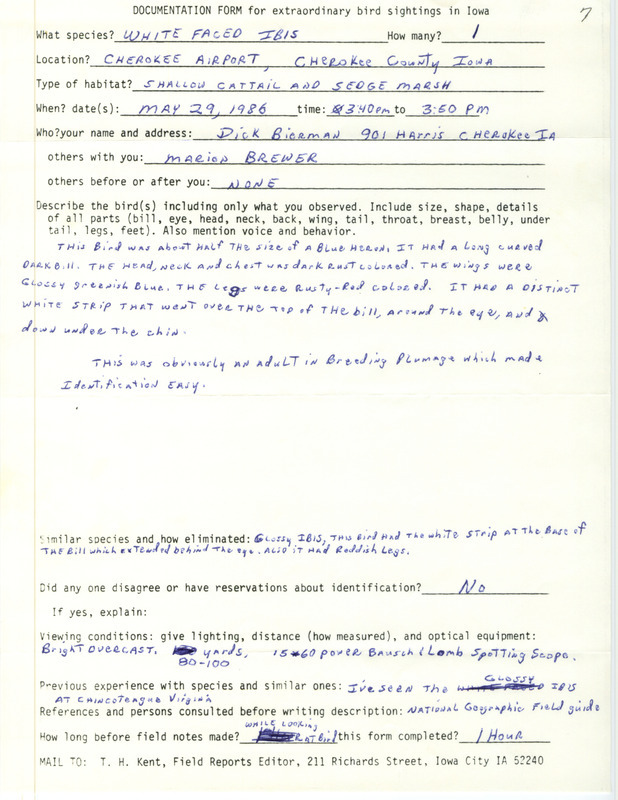 DOCUMENTATION FORM for extraordinary bird sightings in Iowa
7
What species? WHITE FACED IBIS How many? 1
Location? CHEROKEE AIRPORT, CHEROKEE COUNTY IOWA
Type of habitat? SHALLOW CATTAIL AND SEDGE MARSH
When? date(s): MAY 29, 1986 time: 3:40pm to 3:50 PM
Who?your name and address: Dick Bierman 901 HARRIS CHEROKEE IA
others with you: MARION BREWER
others before or after you: NONE
Describe the bird(s) including only what you observed. Include size, shape, details
of all parts (bill, eye, head, neck, back, wing, tail, throat, breast, belly, under
tail, legs, feet). Also mention voice and behavior.
THIS Bird was about Half THE size of A BLUE HERON, IT HAD A LONG curved
DARK Bill. THE HEAD, NECK AND CHEST WAS DARK RUST COLORED. THE WINGS WERE
GLOSSY greenish BLUE. THE Legs WERE RUSTY-Red COLORED. IT HAD A DISTINCT
WHITE STRIP THAT WENT OVER THE TOP OF THE bill, Around THE eye, AND
down under THE chin.
THIS WAS obviously AN ADULT IN Breeding PLUMAGE which made
Identification EASY.
Similar species and how eliminated: GLOSSY IBIS, THIS BIRD HAD THE WHITE STRIP AT THE BASE OF
THE Bill which extended behind THE eye. ALSO IT HAD Reddish Legs.
Did any one disagree or have reservations about identification? No
If yes, explain:
Viewing conditions: give lighting, distance (how measured), and optical equipment:
BRIGHT OVERCAST. yards, 15-60 power Bausch & Lomb Spotting Scope.
80-100
GLOSSY
Previous experience with species and similar ones: I've SEEN THE IBIS
AT CHINCOTEAGUE VIRGINIA
References and persons consulted before writing description: NATIONAL GEOGRAPHIC FIELD guide
WHILE LOOKING
How long before field notes made? AT Bird this form completed? 1 HOUR
MAIL TO: T. H. Kent, Field Reports Editor, 211 Richards Street, Iowa City IA 52240